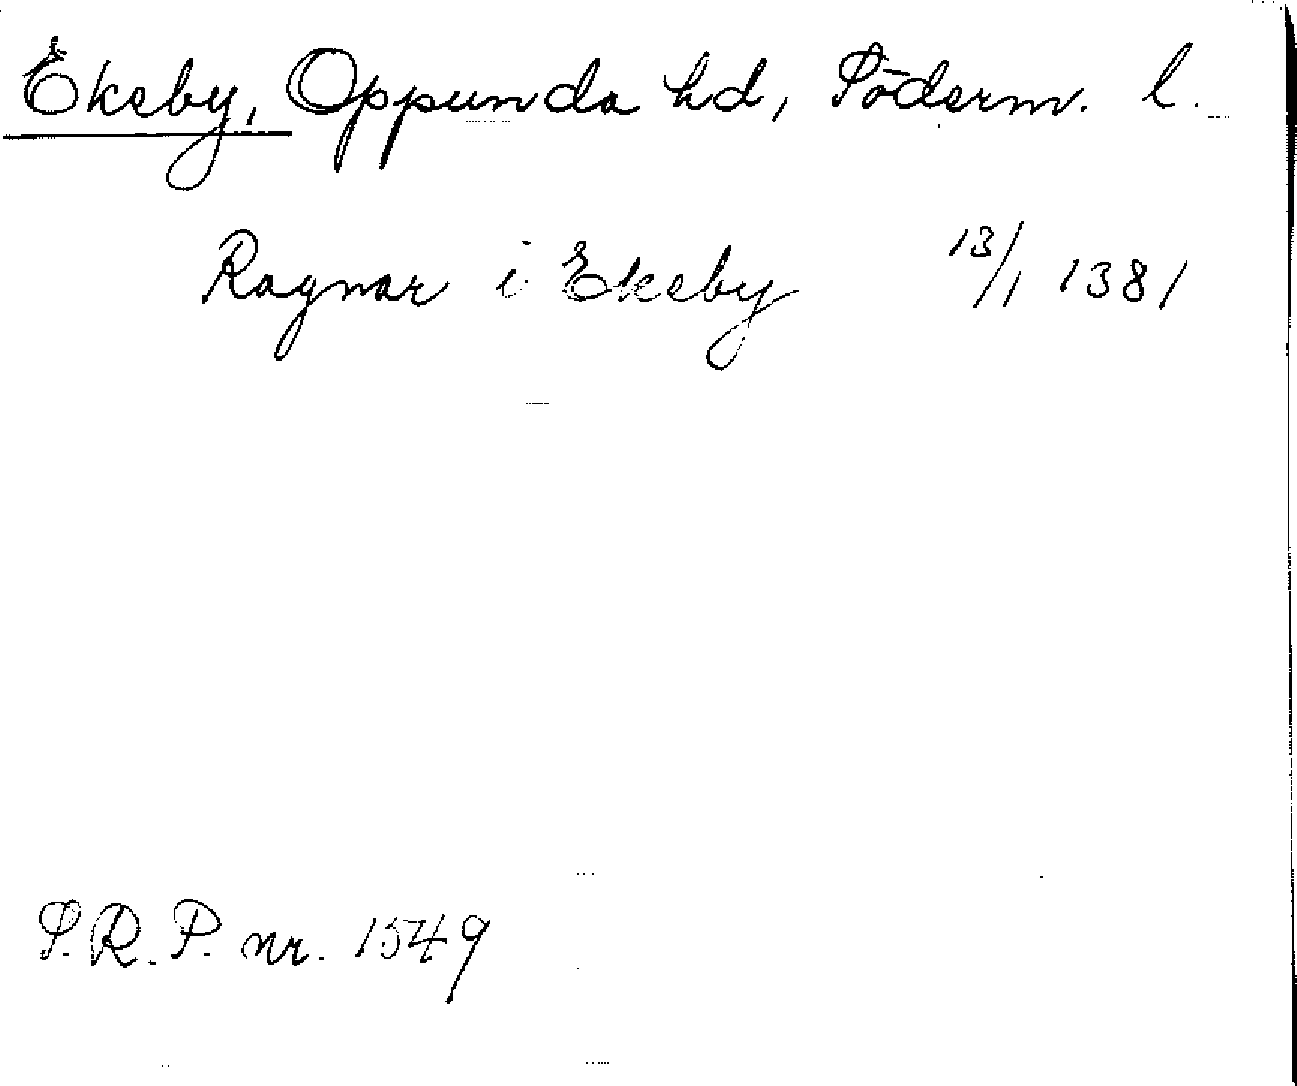 Ekeby, Oppunda hd, Söderm. l.
Ragnar i Ekeby 13/1 1381
S.R.P. nr. 1549